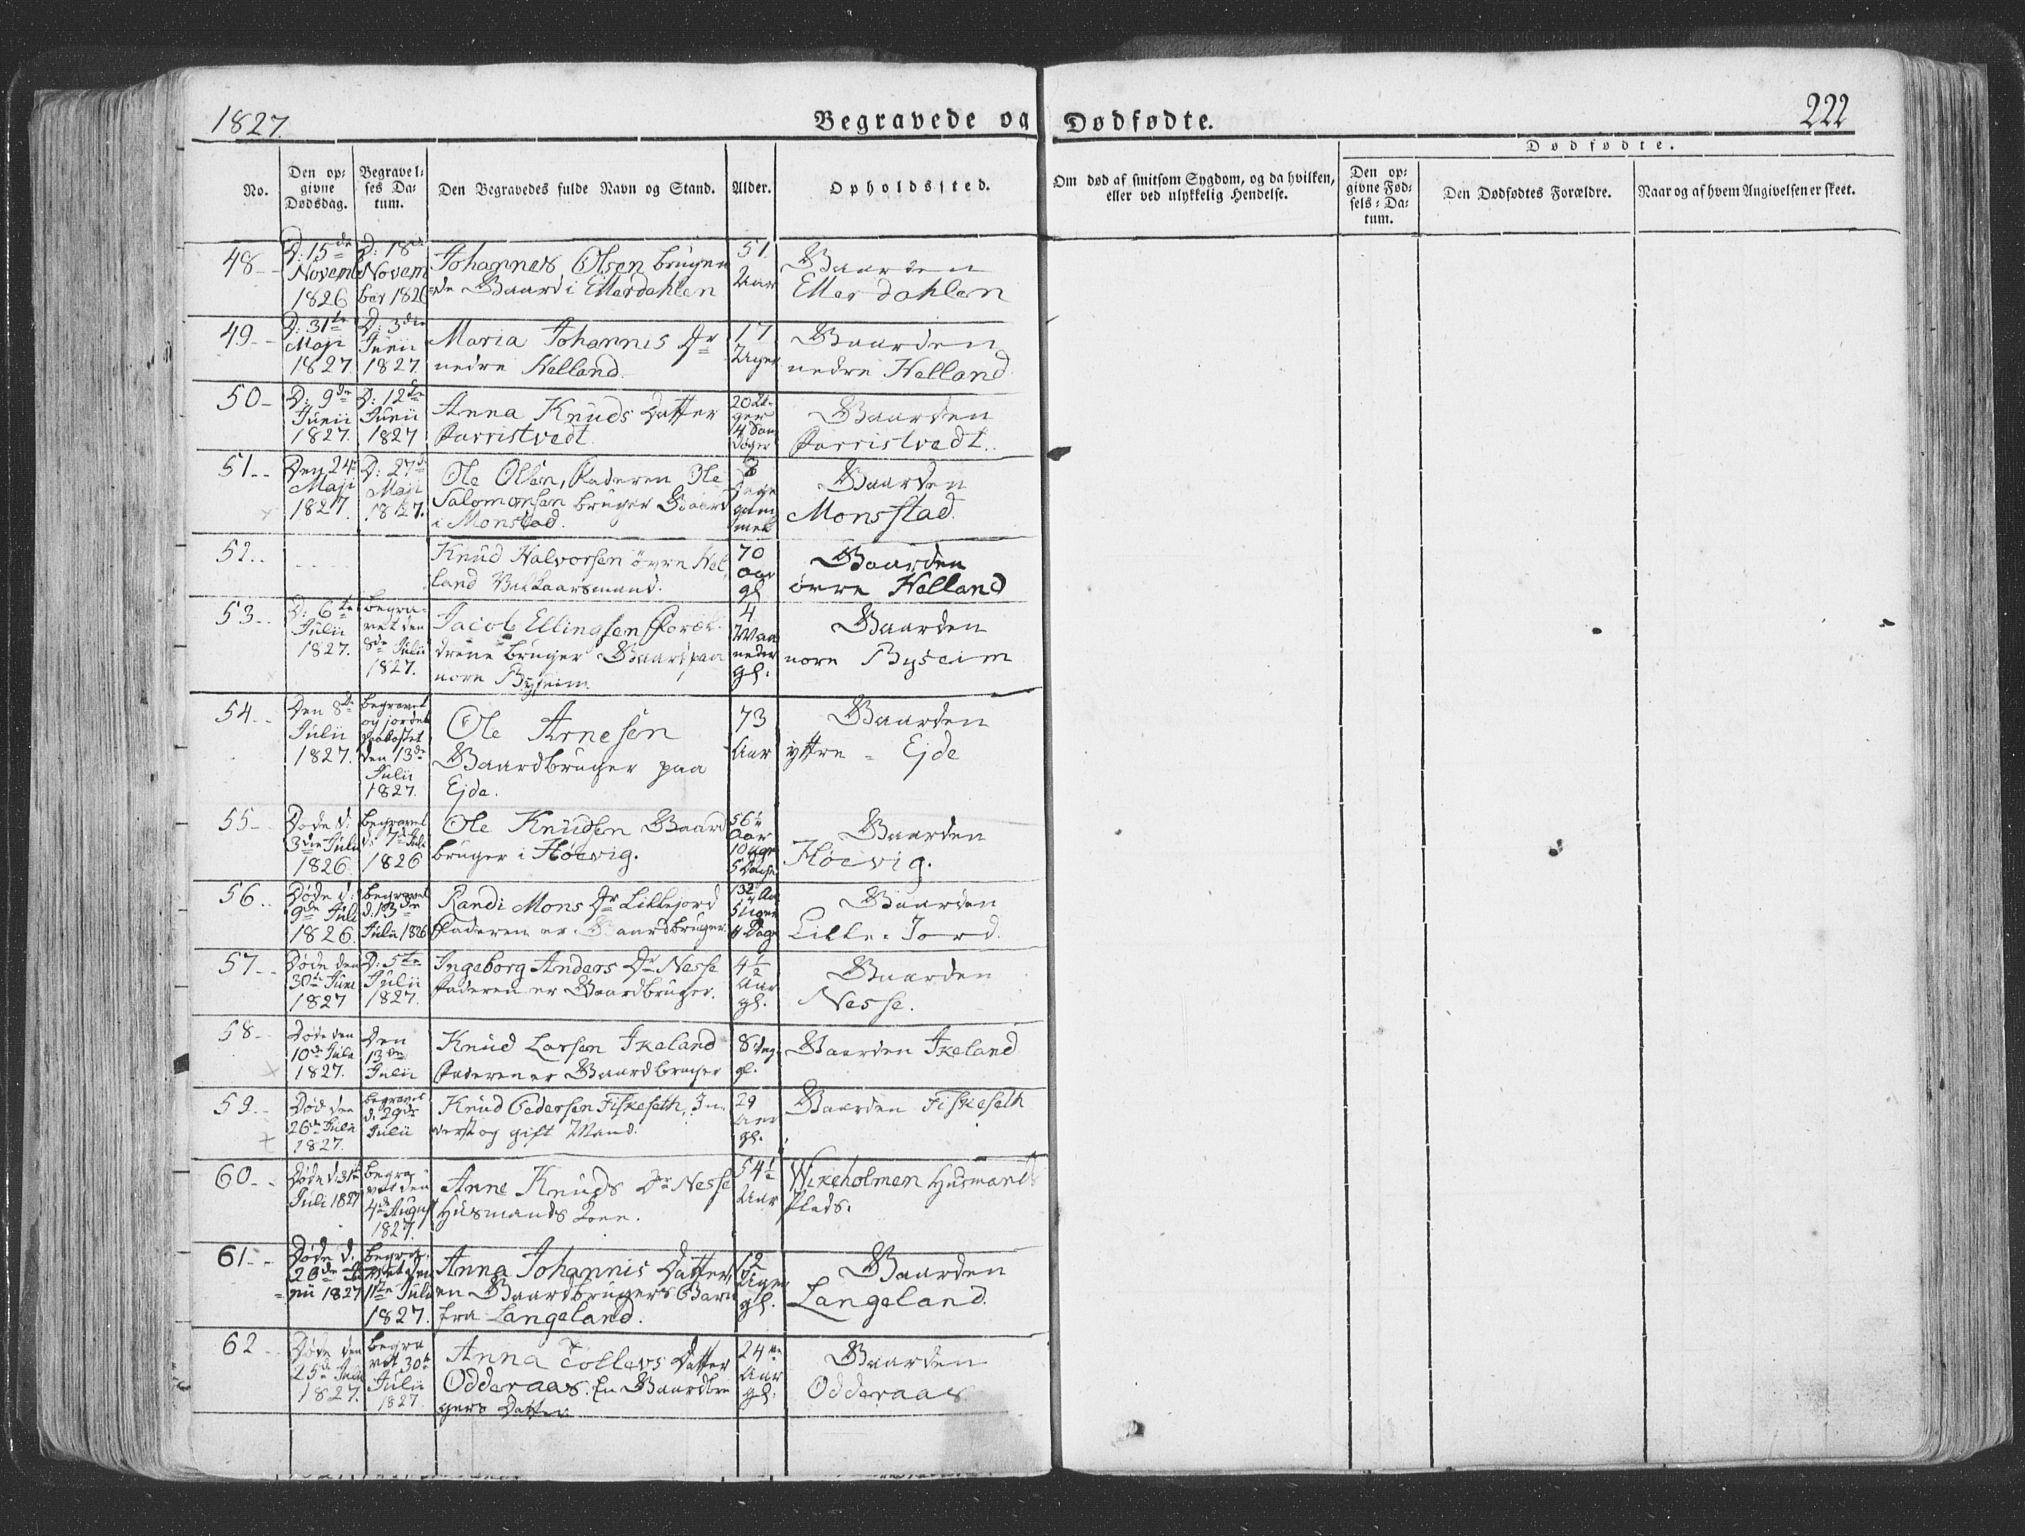 1827.
Begravede og Dødfødte.
222
No.
Den op-
givne
Dødsdag.
Begravel-
ses Da-
tum.
Den Begravedes fulde Navn og Stand.
Alder.
Opholdssted.
Om død af smitsom Sygdom, og da hvilken,
eller ved ulykkelig Hendelse.
Dødfødte.
Den op-
givne Fød-
sels-Da-
tum.
Den Dødfødtes Forældre.
Naar og af hvem Angivelsen er skeet.
48
D: 15de
Novemb
1826
D: 18de
Novem
ber 1826
Johannes Olsen brugen
de Gaard i Ellerdahlen
51
Aar
Gaarden
Ellerdahlen
49
D: 31te
Maji
1827.
D: 3die
Junii
1827.
Maria Johannis Dr
nedre Helland.
17
Uger
Gaarden
nedre Helland
50
D: 9de
Junii
1827.
D: 12te
Junii
1827
Anna Knuds Datter
Farristvedt.
20 U-
ger
Gaarden
Farristvedt.
51
Den 24
Maji
1827
D: 27de
Maji
1827.
Ole Olsen, Faderen Ole
Salomonsen bruger Gaard
i Monstad.
gam
mel
Gaarden
Monsstad.
52
Knud Halvorsen øvre Hel
land Vilkaarsmand.
70
Aar
gl.
Gaarden
øvre Helland
53
D: 6te
Julii
1827.
begra-
vet den
8de Julii
1827.
Jacob Ellingsen Foræl-
drene bruger Gaard paa
nore Byseim
4
Maa
neder
gl:
Gaarden
nore Byseim
54
Den 8de
Julii
1827.
begravet
og jordet
den 13de
Julii
1827.
Ole Arnesen
Gaardbruger paa
Ejde.
73
Aar
Gaarden
yttre - Ejde
55
Døde d:
3die Julii
1826
begravet
d: 7de Julii
1826
Ole Knudsen Gaard
bruger i Høevig.
56
Aar
10 Uger
5 Dage
Gaarden
Høevig.
56
Døde d:
9de Julii
1826.
begravet
d: 13de
Julii 1826
Randi Mons Dr Lillejord
Faderen er Gaardbruger
5 Uger
4 Dage
Gaarden
Lille-Jord.
57
Døde den
30te Juni
1827
D: 5te
Julii
1827.
Ingeborg Anders Dr Nesse
Faderen er Gaardbruger.
4½
Aar
gl.
Gaarden
Nesse.
58
Døde den
10de Julii
1827.
Den
13de
Julii
Knud Larsen Ikeland
Faderen er Gaardbruger
8 Dag
gl.
Gaarden Ikeland
59
Død den
26de Julii
1827.
begravet
d: 29de
Julii
Knud Pedersen Fiskeseth, In-
derst og gift Mand.
29
Aar
gl.
Gaarden Fiskeseth
60
Døde d: 31te
Juli 1827
begra
vet den
4de August
1827.
Anne Knuds Dr Nesse
Husmands Kone.
54½
Aar
Wikeholmen Husmands
Plads.
61
Døde d.
26de Ju
nii 1827
begra-
vet den
11te Julii
1827.
Anna Johannis Datter,
en Gaardbrugers Barn
fra Langeland.
12
Uger
gl.
Gaarden
Langeland.
62
Døde den
25de Julii
1827.
begra
vet 30te
Julii
1827.
Anna Tollevs Datter
Odderaas. En Gaardbru
gers Datter
24
Aar
gl.
Gaarden
Odderaas.